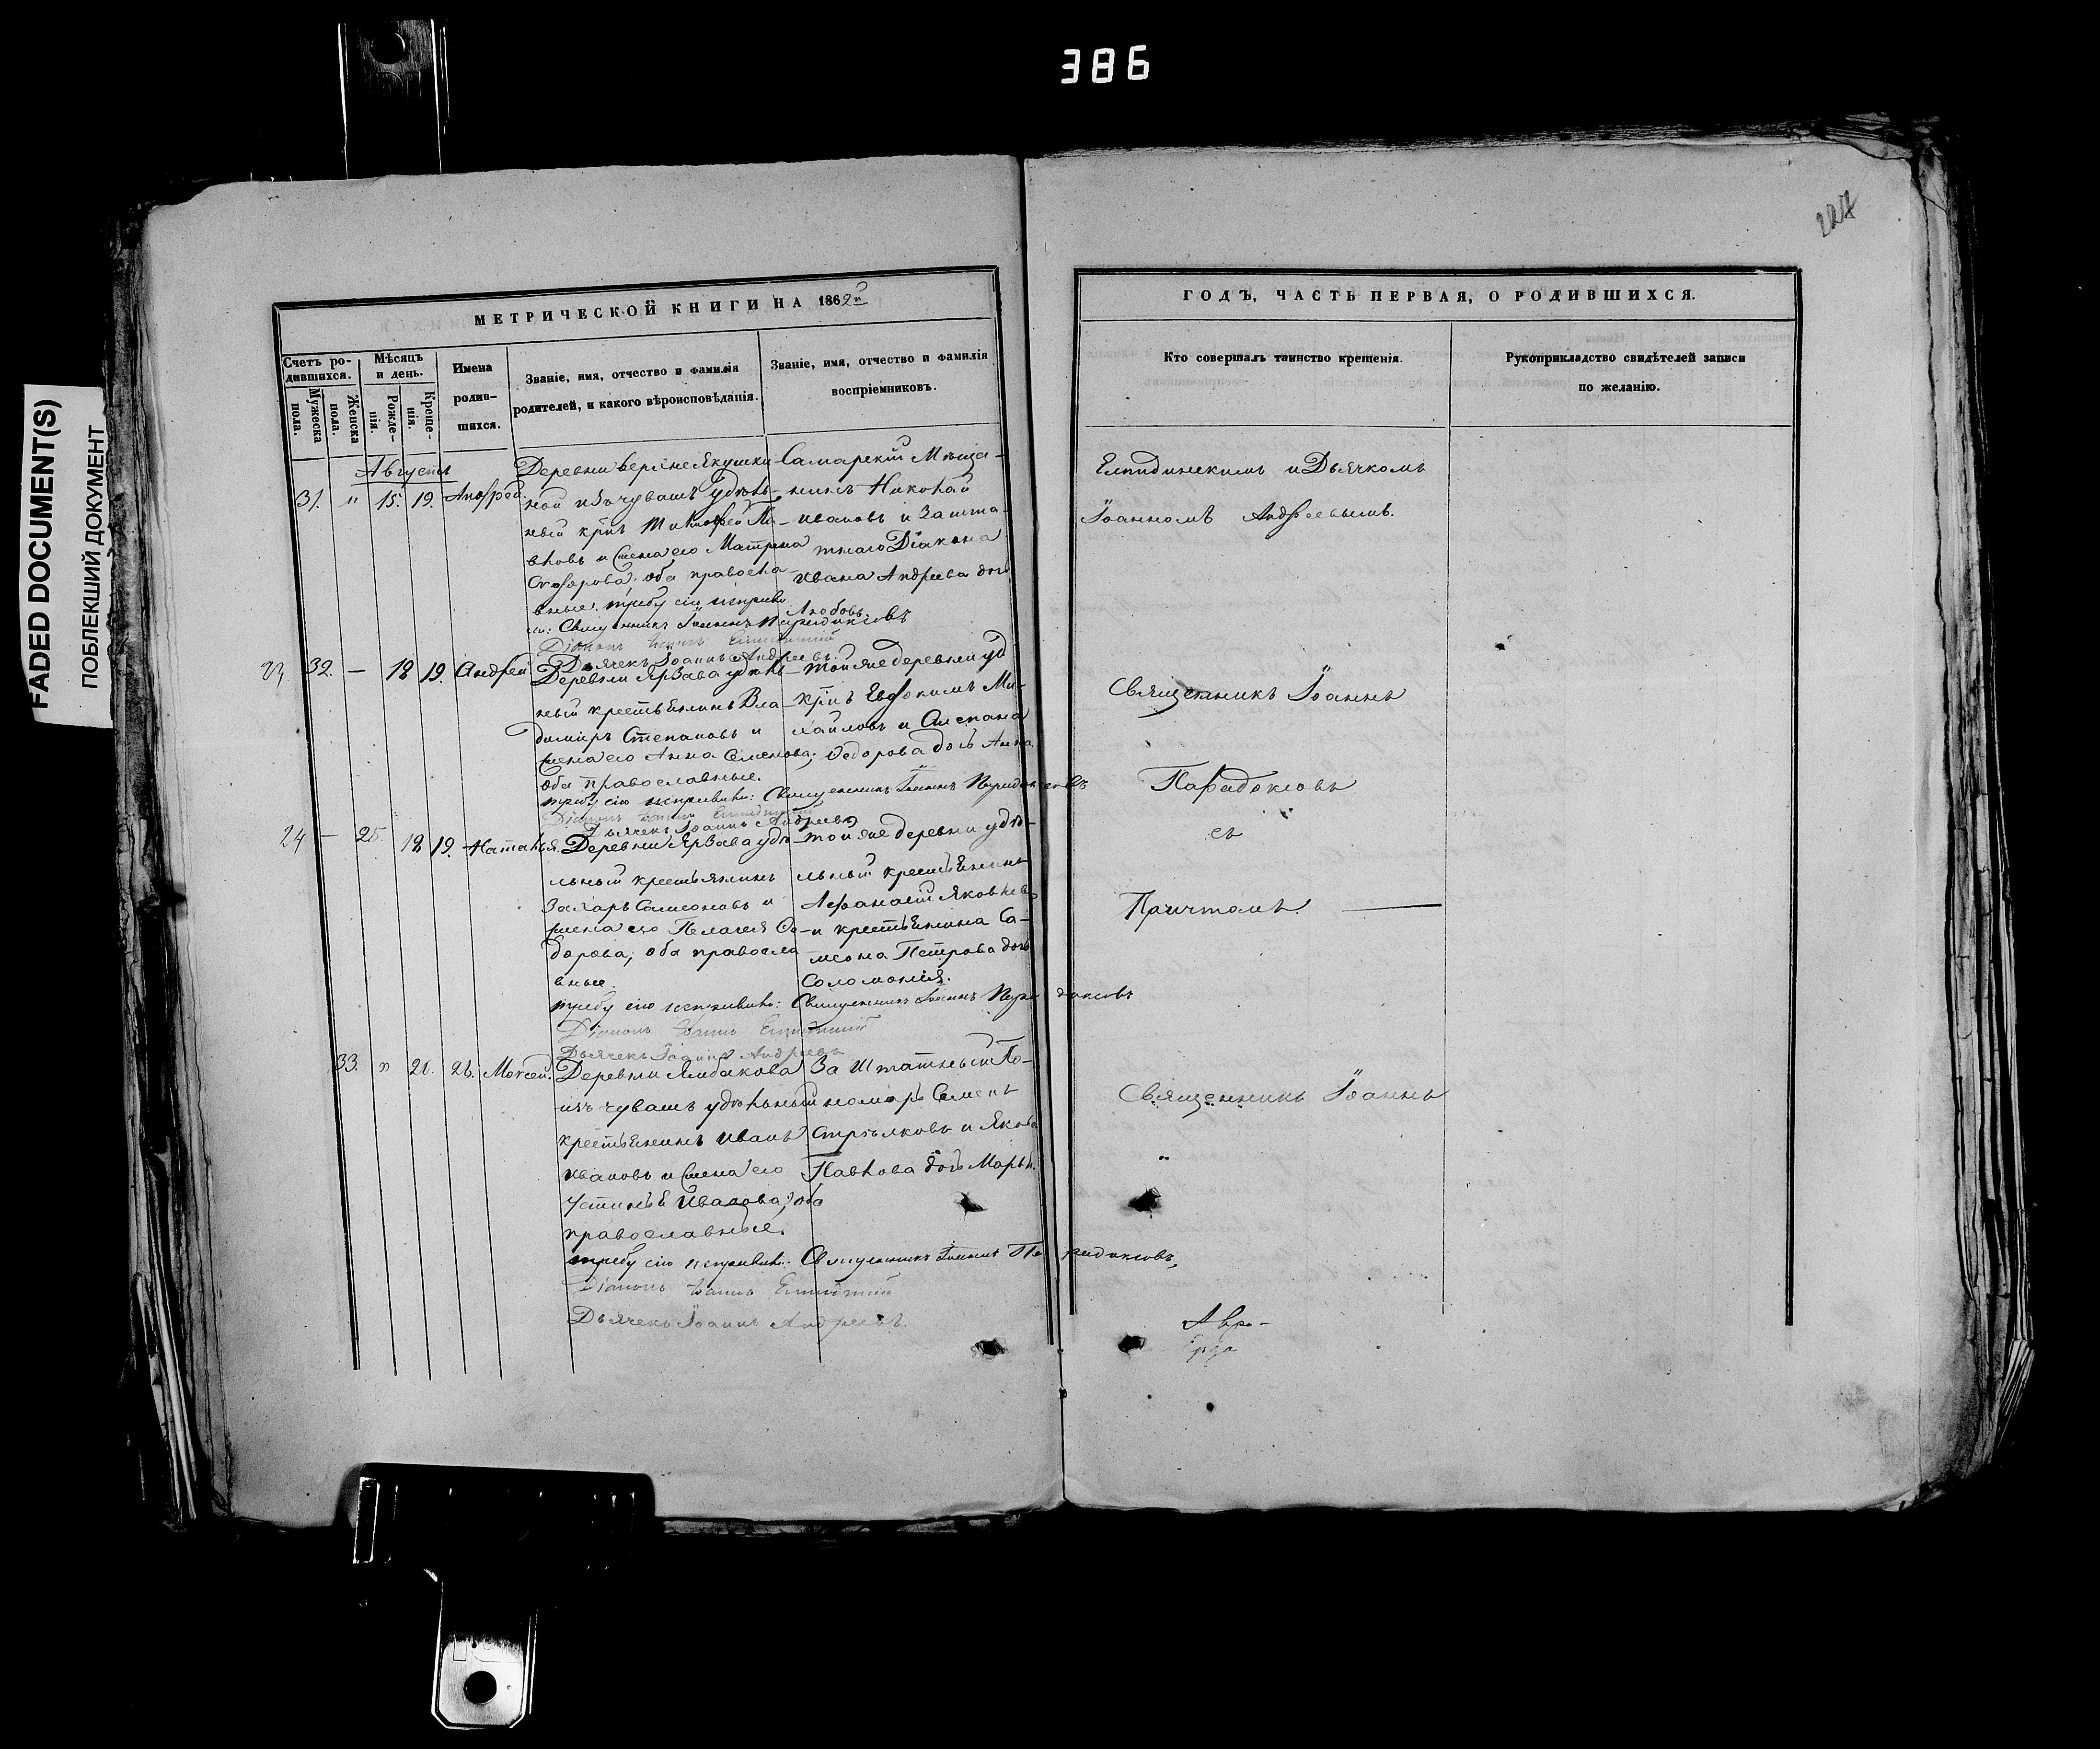 386
FADED DOCUMENT(S)
ПОБЛЕКШИЙ ДОКУМЕНТ
МЕТРИЧЕСКОЙ КНИГИ НА 1862й
Счетъ родившихся.
Мужеска пола.
Женска пола.
Мѣсяцъ и день.
Рожденія.
Крещенія.
Имена родившихся.
Званіе, имя, отчество и фамилія
родителей, и какого вѣроисповѣданія.
Званіе, имя, отчество и фамилія
воспріемниковъ.
Августъ
31. " 15. 19. Андрей.
Деревни Верхне Якушки-
ной изъ чувашъ удѣль-
ный крнъ Тимофей Па-
вловъ и жена его Матрена
оба правосла-
вные. требу сію исправи
ли: Священникъ Іоаннъ Парадоксовъ
Діаконъ Іоаннъ Елпидинскій
Дьячекъ Іоаннъ Андреевъ.
Самарскій Мѣща-
нинъ Николай
Ивановъ и Зашта-
тнаго Діакона
Ивана Андреева дочь
Любовь.
23 32. — 18 19. Андрей
Деревни удѣль-
ный крестьянинъ Вла-
димиръ Степановъ и
жена его Анна Семенова;
оба православные.
требу сію исправили: Священникъ Іоаннъ Парадоксовъ
Діаконъ Іоаннъ Елпидинскій
Дьячекъ Іоаннъ Андреевъ
той же деревни уд
крнъ Евдокимъ Ми-
хайловъ и Степана
Федорова дочь Анна
24 — 25. 18 19. Наталья.
Деревни удѣ-
льный крестьянинъ
Захаръ Самсоновъ и
жена его Пелагея Си-
дорова; оба правосла
вные.
требу сію исправили: Священникъ Іоаннъ Парадоксовъ
Діаконъ Іоаннъ Елпидинскій
Дьячекъ Іоаннъ Андреевъ
той же деревни удѣ-
льный крестьянинъ
Афанасій Яковлевъ
и крестьянина Са-
мсона Петрова дочь
Соломонія.
33. " 20. 26. Моѵсей.
Деревни
изъ чувашъ удѣльный
крестьянинъ Иванъ
Ивановъ и жена его
Устинья Иванова; оба
православные.
требу сію исправили: Священникъ Іоаннъ Парадоксовъ,
Діаконъ Іоаннъ Елпидинскій
Дьячекъ Іоаннъ Андреевъ.
За Штатный По-
номарь Семенъ
Стрѣлковъ и Якова
Павлова дочь Марья.
ГОДЪ, ЧАСТЬ ПЕРВАЯ, О РОДИВШИХСЯ.
Кто совершалъ таинство крещенія.
Рукоприкладство свидѣтелей записи
по желанію.
Елпидинскимъ и Дьячкомъ
Іоанномъ Андреевымъ.
Священникъ Іоаннъ
Парадоксовъ
съ
Причтомъ. —
Священникъ Іоаннъ
"